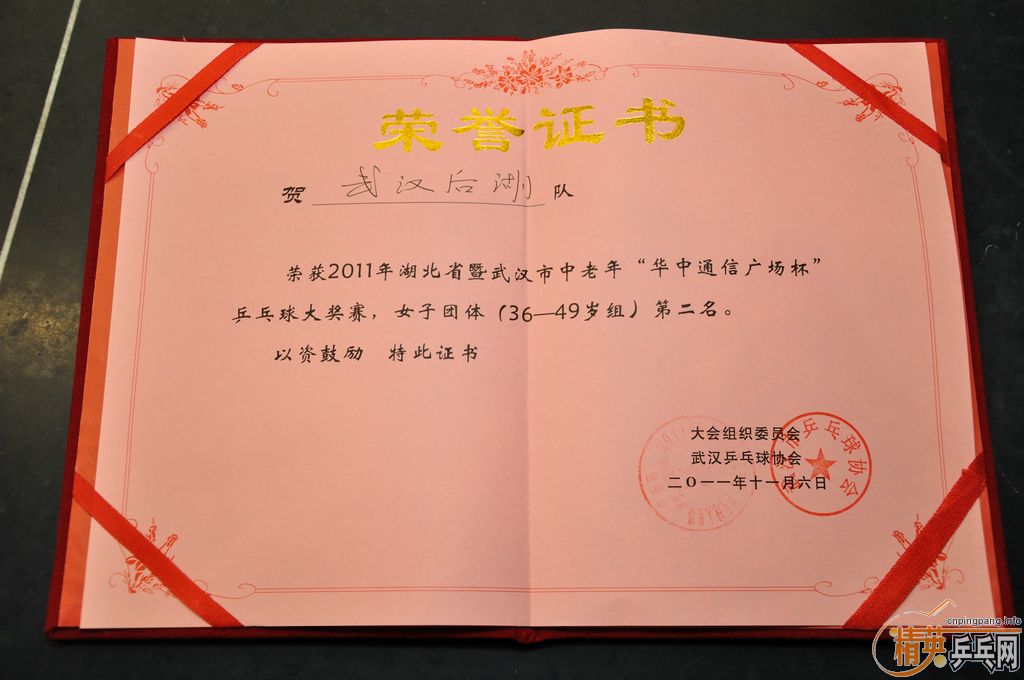 荣誉证书
贺 武汉后湖 队
荣获2011年湖北省暨武汉市中老年“华中通信广场杯”
乒乓球大奖赛，女子团体（36—49岁组）第二名。
以资鼓励 特此证书
大会组织委员会
武汉乒乓球协会
二O一一年十一月六日
武汉市乒乓球协会
cnpingpang.info
精英乒乓网